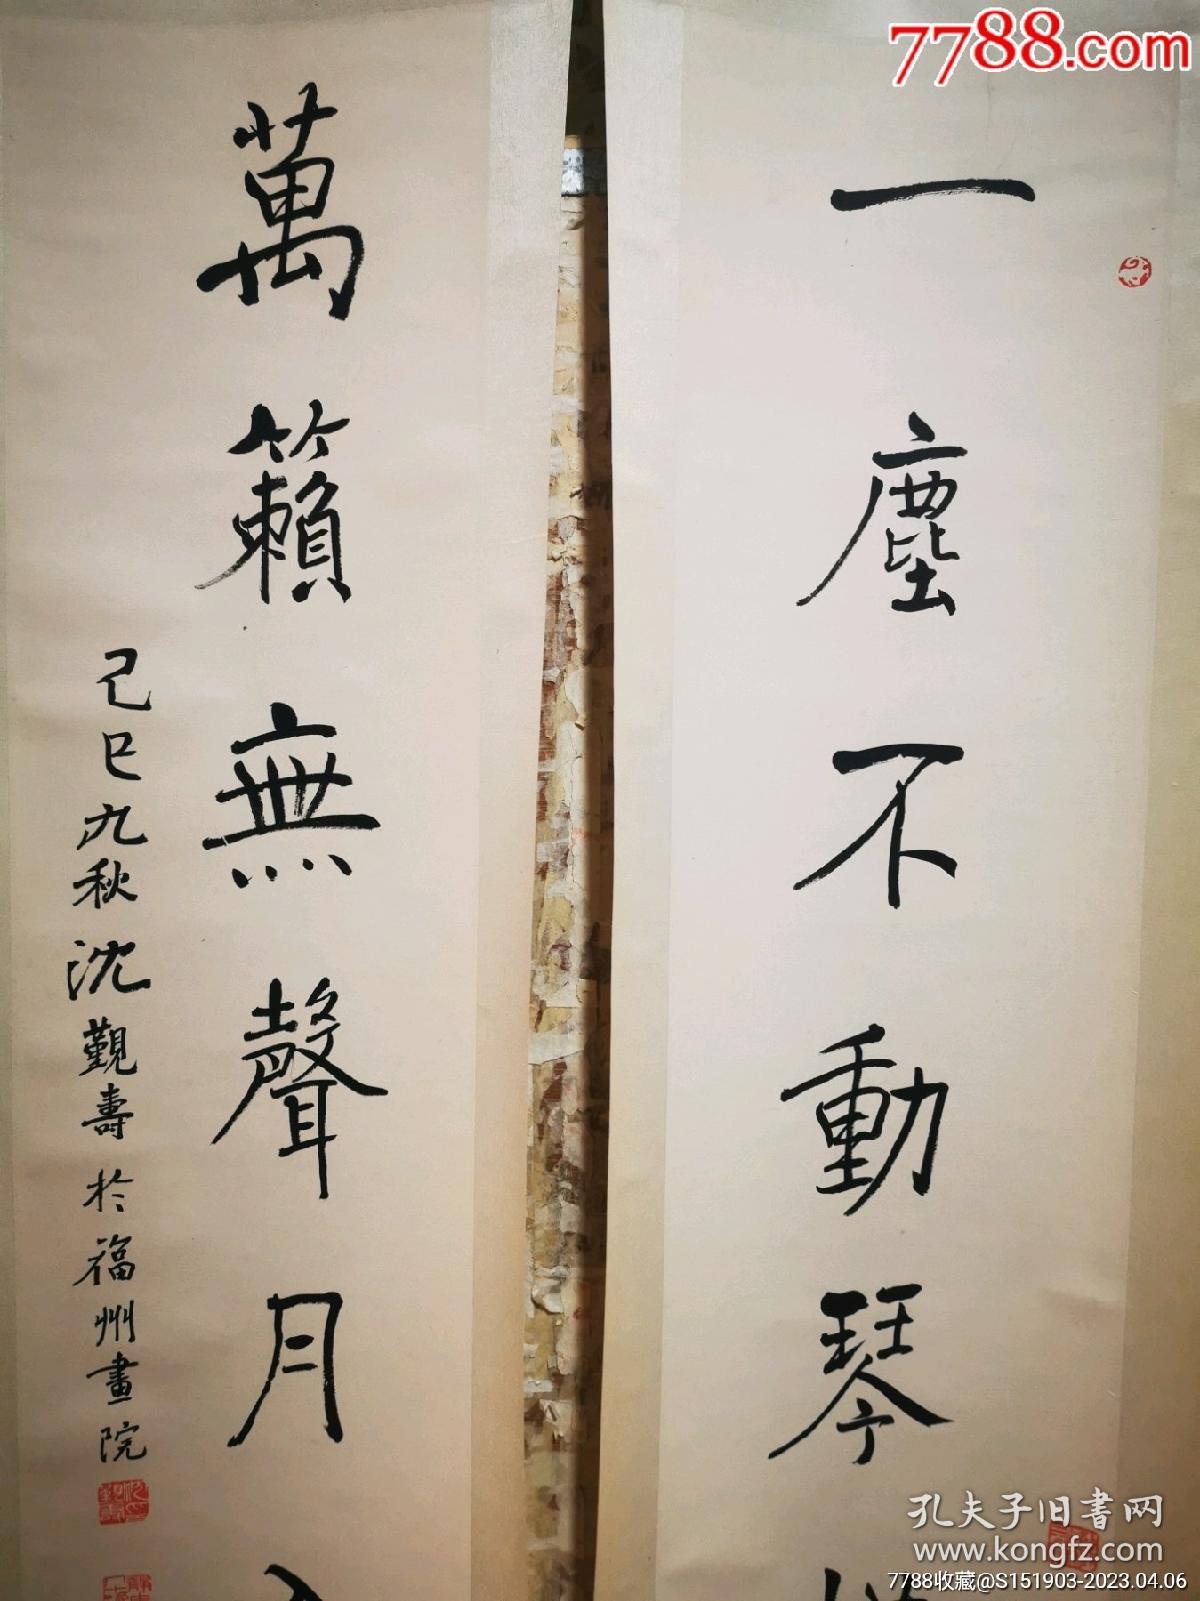 7788.com
一塵不動琴
萬籟無聲月
己巳九秋沈觀壽於福州畫院
孔夫子旧書网
www.kongfz.com
7788收藏@S151903-2023.04.06